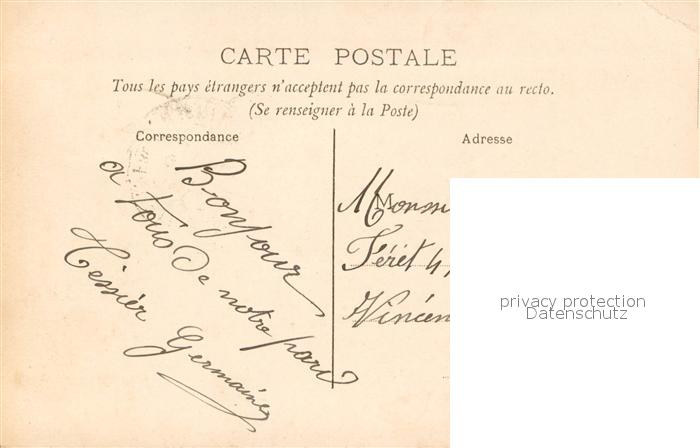 CARTE POSTALE
Tous les pays étrangers n'acceptent pas la correspondance au recto.
(Se renseigner à la Poste)
Correspondance
Adresse
Bonjour
a tous De notre part
Tèssièr Germaine
M
Férèt 4,
Vincen
privacy protection
Datenschutz